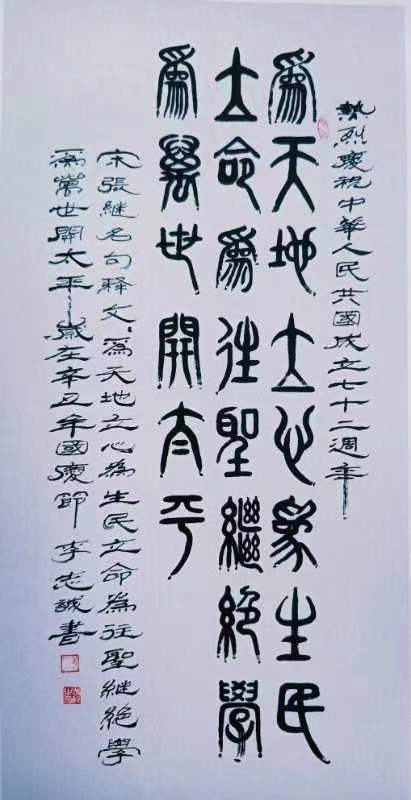 熱烈慶祝中華人民共國成立七十二週年
為天地立心為生民
立命為往聖繼絕學
為萬世開太平
宋張継名句释文：為天地立心為生民立命為往聖継絕學
為萬世開太平—歲在辛丑年國慶節 李志誠書